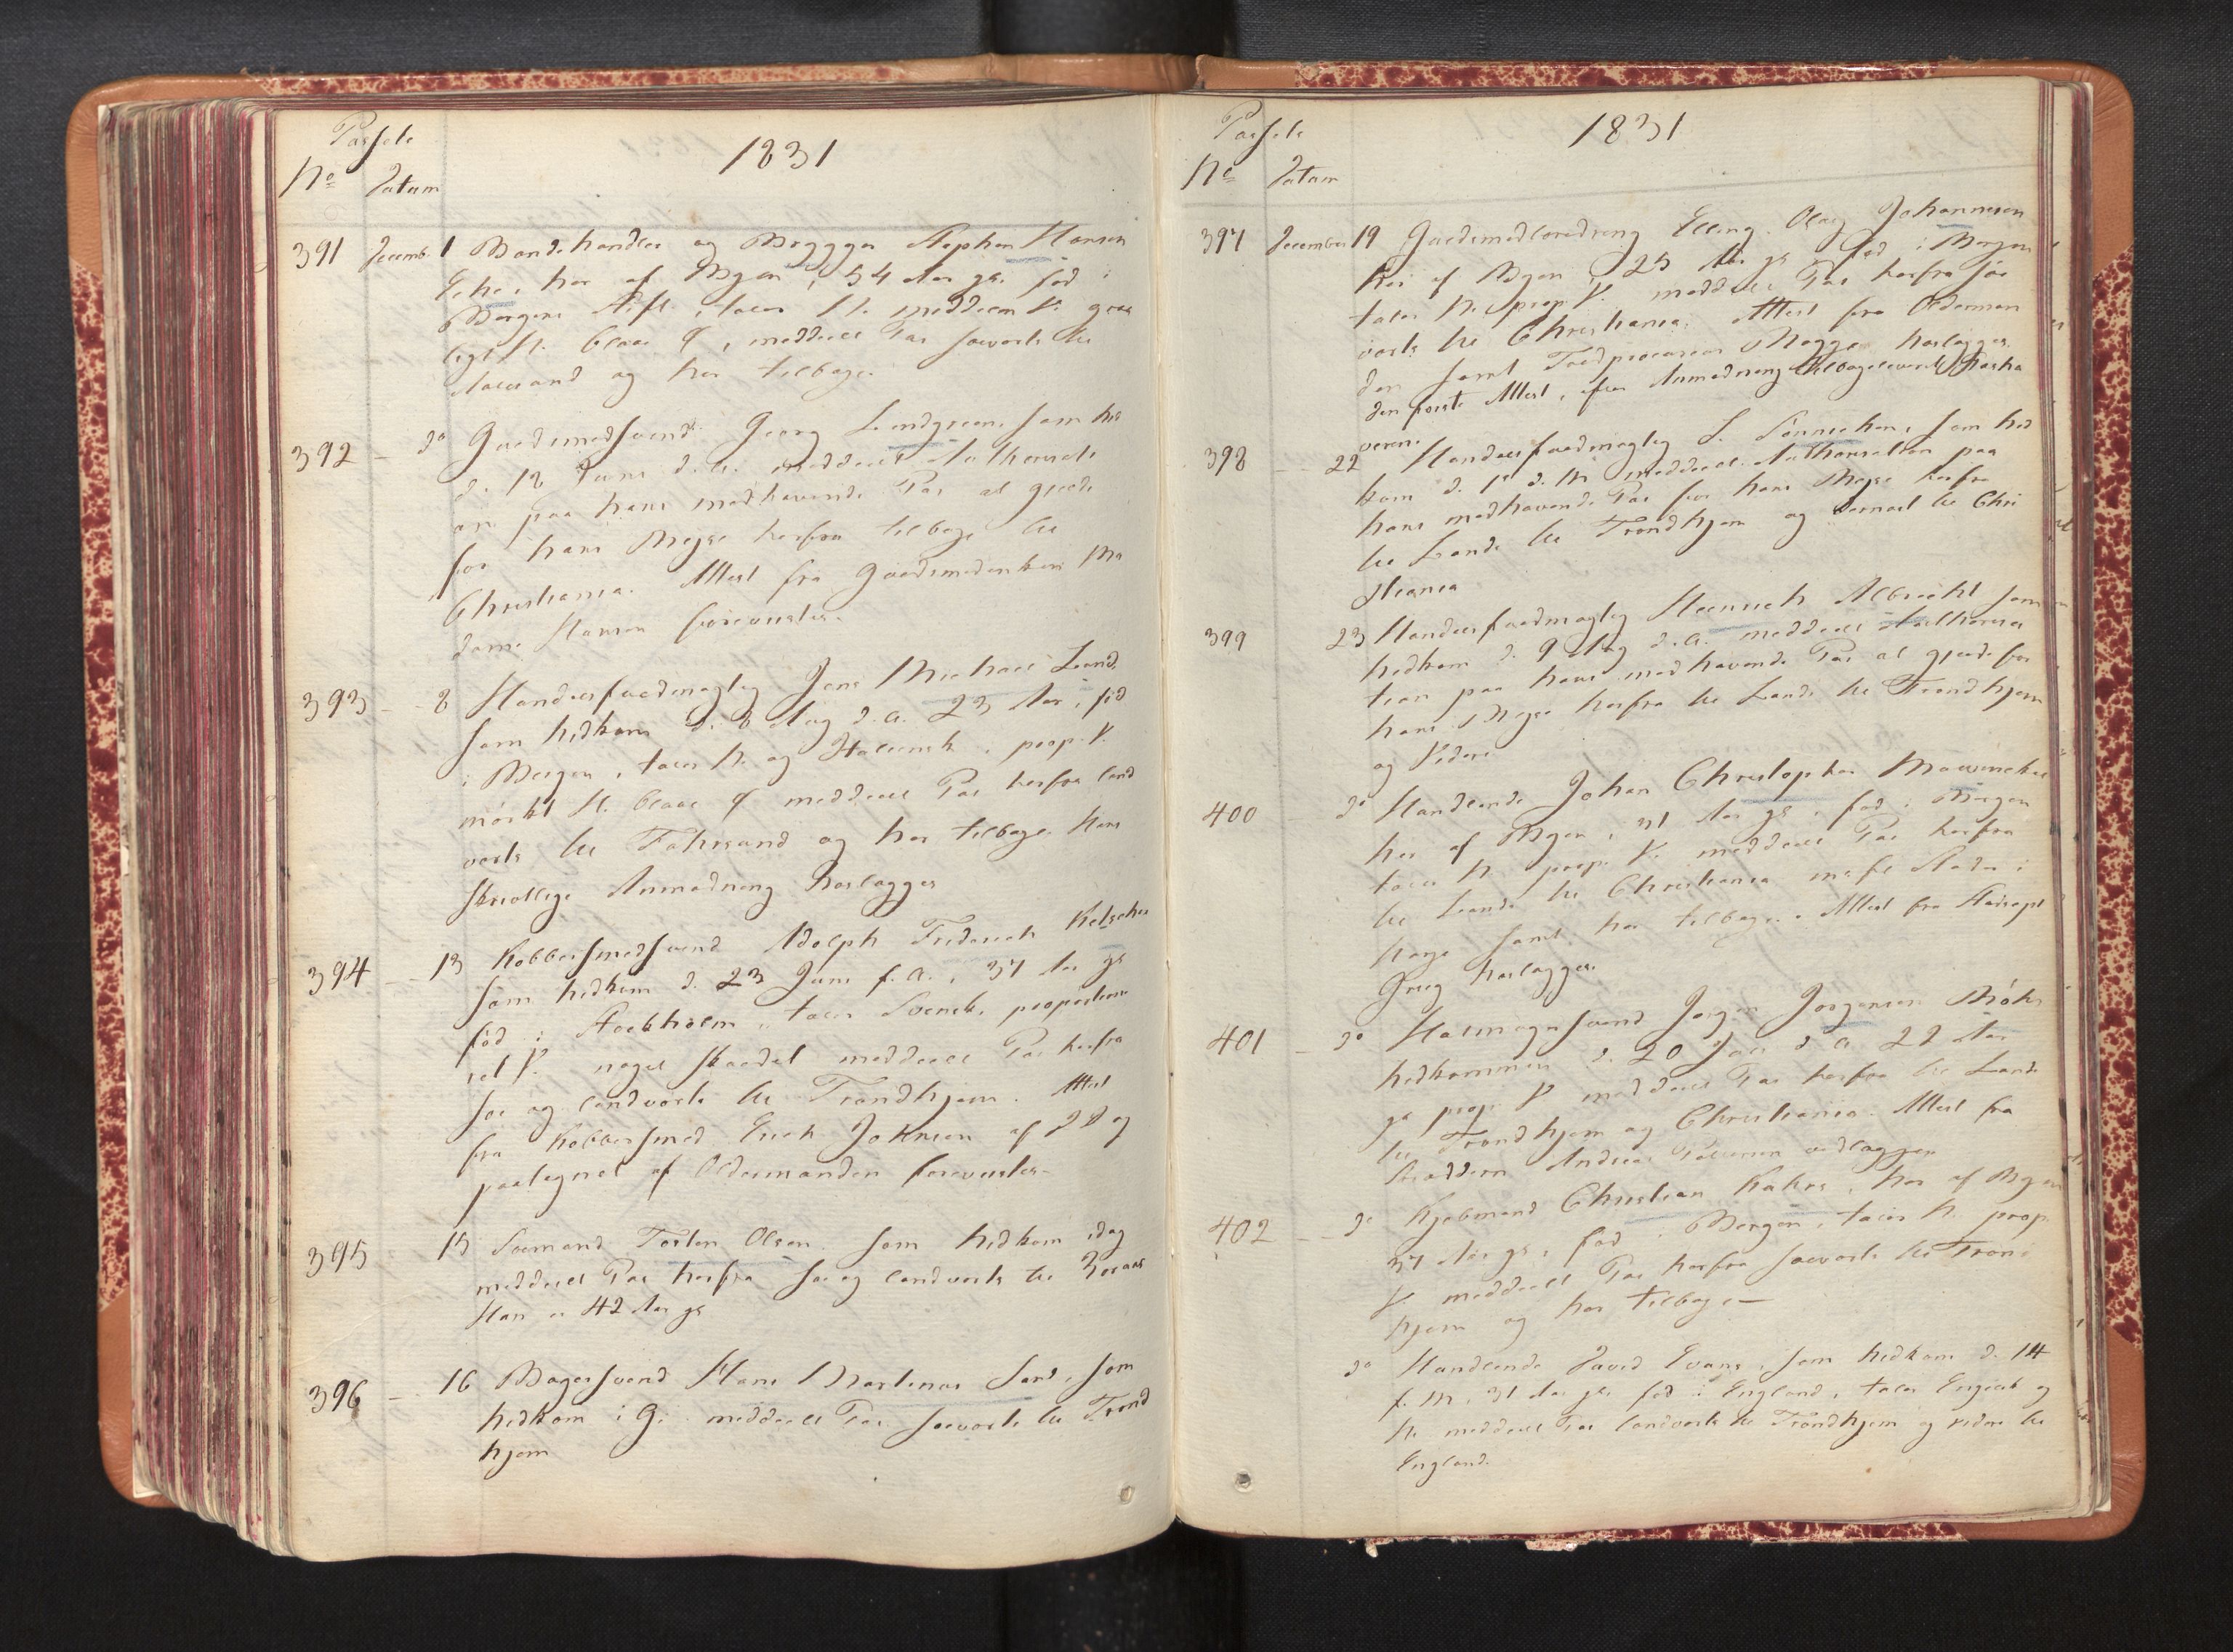 Passets
No Datum
1831
391 Decemb. 1 Bondehandler og Brygger Stephan Hansen
her af Byen, 54 Aar gl. fød i
Bergens Stift, taler N. middelm V.
lyst H. blaae Ø, meddeelt Pas søeverts til
og her tilbage.
392 - do Guldsmedsvend Georg Lindgreen, som hid
d. 12 Juni d. A. meddeelt Authorisati
on paa hans medhavende Pas at gjælde
for hans Rejse herfra tilbage til
Christiania. Attest fra Guldsmedenken Ma
dame Hansen foreviistes.
393 - 8 Handelsfuldmægtig Jens Michael Lund
som hidkom d. 8 Aug d. A. 23 Aar, fød
i Bergen, taler N. og Italiensk, prop. V.
mørkt H. blaae Ø meddeelt Pas herfra land
verts til Fahrsund og her tilbage. Hans
skriftlige Anmodning henlægges
394 - 13 Kobbersmedsvend Adolph Friderich Kelscher
som hidkom d. 23 Juni f. A., 37 Aar gl
fød i Stockholm, taler Svensk, proportione
ret V. noget skaldet meddeelt Pas herfra
søe og landverts til Trondhjem. Attest
fra Kobbersmed Erich Johnsen af og
paategnet af Oldermanden foreviistes -
395 15 Søemand Torsten Olsen som hidkom idag
meddeelt Pas herfra søe og landverts til
Han er 42 Aar gl
396 - 16 Bagersvend Hans Martinus Sand, som
hidkom i G. meddeelt Pas søeverts til Trond
hjem
Passets
No Datum
1831
397 December 19 Guldsmedlæredreng Elling Olai Johannesen
her af Byen, 25 Aar gl fød i Bergen
taler N. prop. V. meddeelt Pas herfra søe
verts til Christiania. Attest fra Olderman
den samt henlægges.
den første Attest, efter Anmodning tilbageleveret
veren.
398 - 22 Handelsfuldmægtig S. Sönnichsen, som hid
kom d. 1 d. M meddeelt Authorisation paa
hans medhavende Pas for hans Rejse herfra
til Lands til Trondhjem og dernæst til Chri
stiania
399 23 Handelsfuldmægtig Heinrich Albrecht som
hidkom d. 9 Aug d. A. meddeelt Authorisa
tion paa hans medhavende Pas at gjælde for
hans Rejse herfra til Lands til Trondhjem
og Videre
400 do Handlende Johan Christopher Mowinchel
her af Byen, 31 Aar gl, fød i Bergen
taler N. prop. V. meddeelt Pas herfra
til Lands til Christiania Stæder i
Norge samt her tilbage. Attest fra Stadscapt
Grieg henlægges.
401 - do Hatmagersvend Jørgen Jørgensen
hidkommen d. 20 Juli d. A. 22 Aar
gl prop. V meddeelt Pas herfra til Lands
til Trondhjem og Christiania. Attest fra
Andreas vedlægges
402 - do Kjøbmand Christian Kahrs, her af Byen
37 Aar gl, fød i Bergen, taler N. prop.
V. meddeelt Pas herfra søeverts til Trond
hjem og her tilbage -
do Handlende David Evans, som hidkom d. 14
f. M, 31 Aar gl. fød i England, taler Engelsk og
N. meddeelt Pas landverts til Trondhjem og videre til
England.